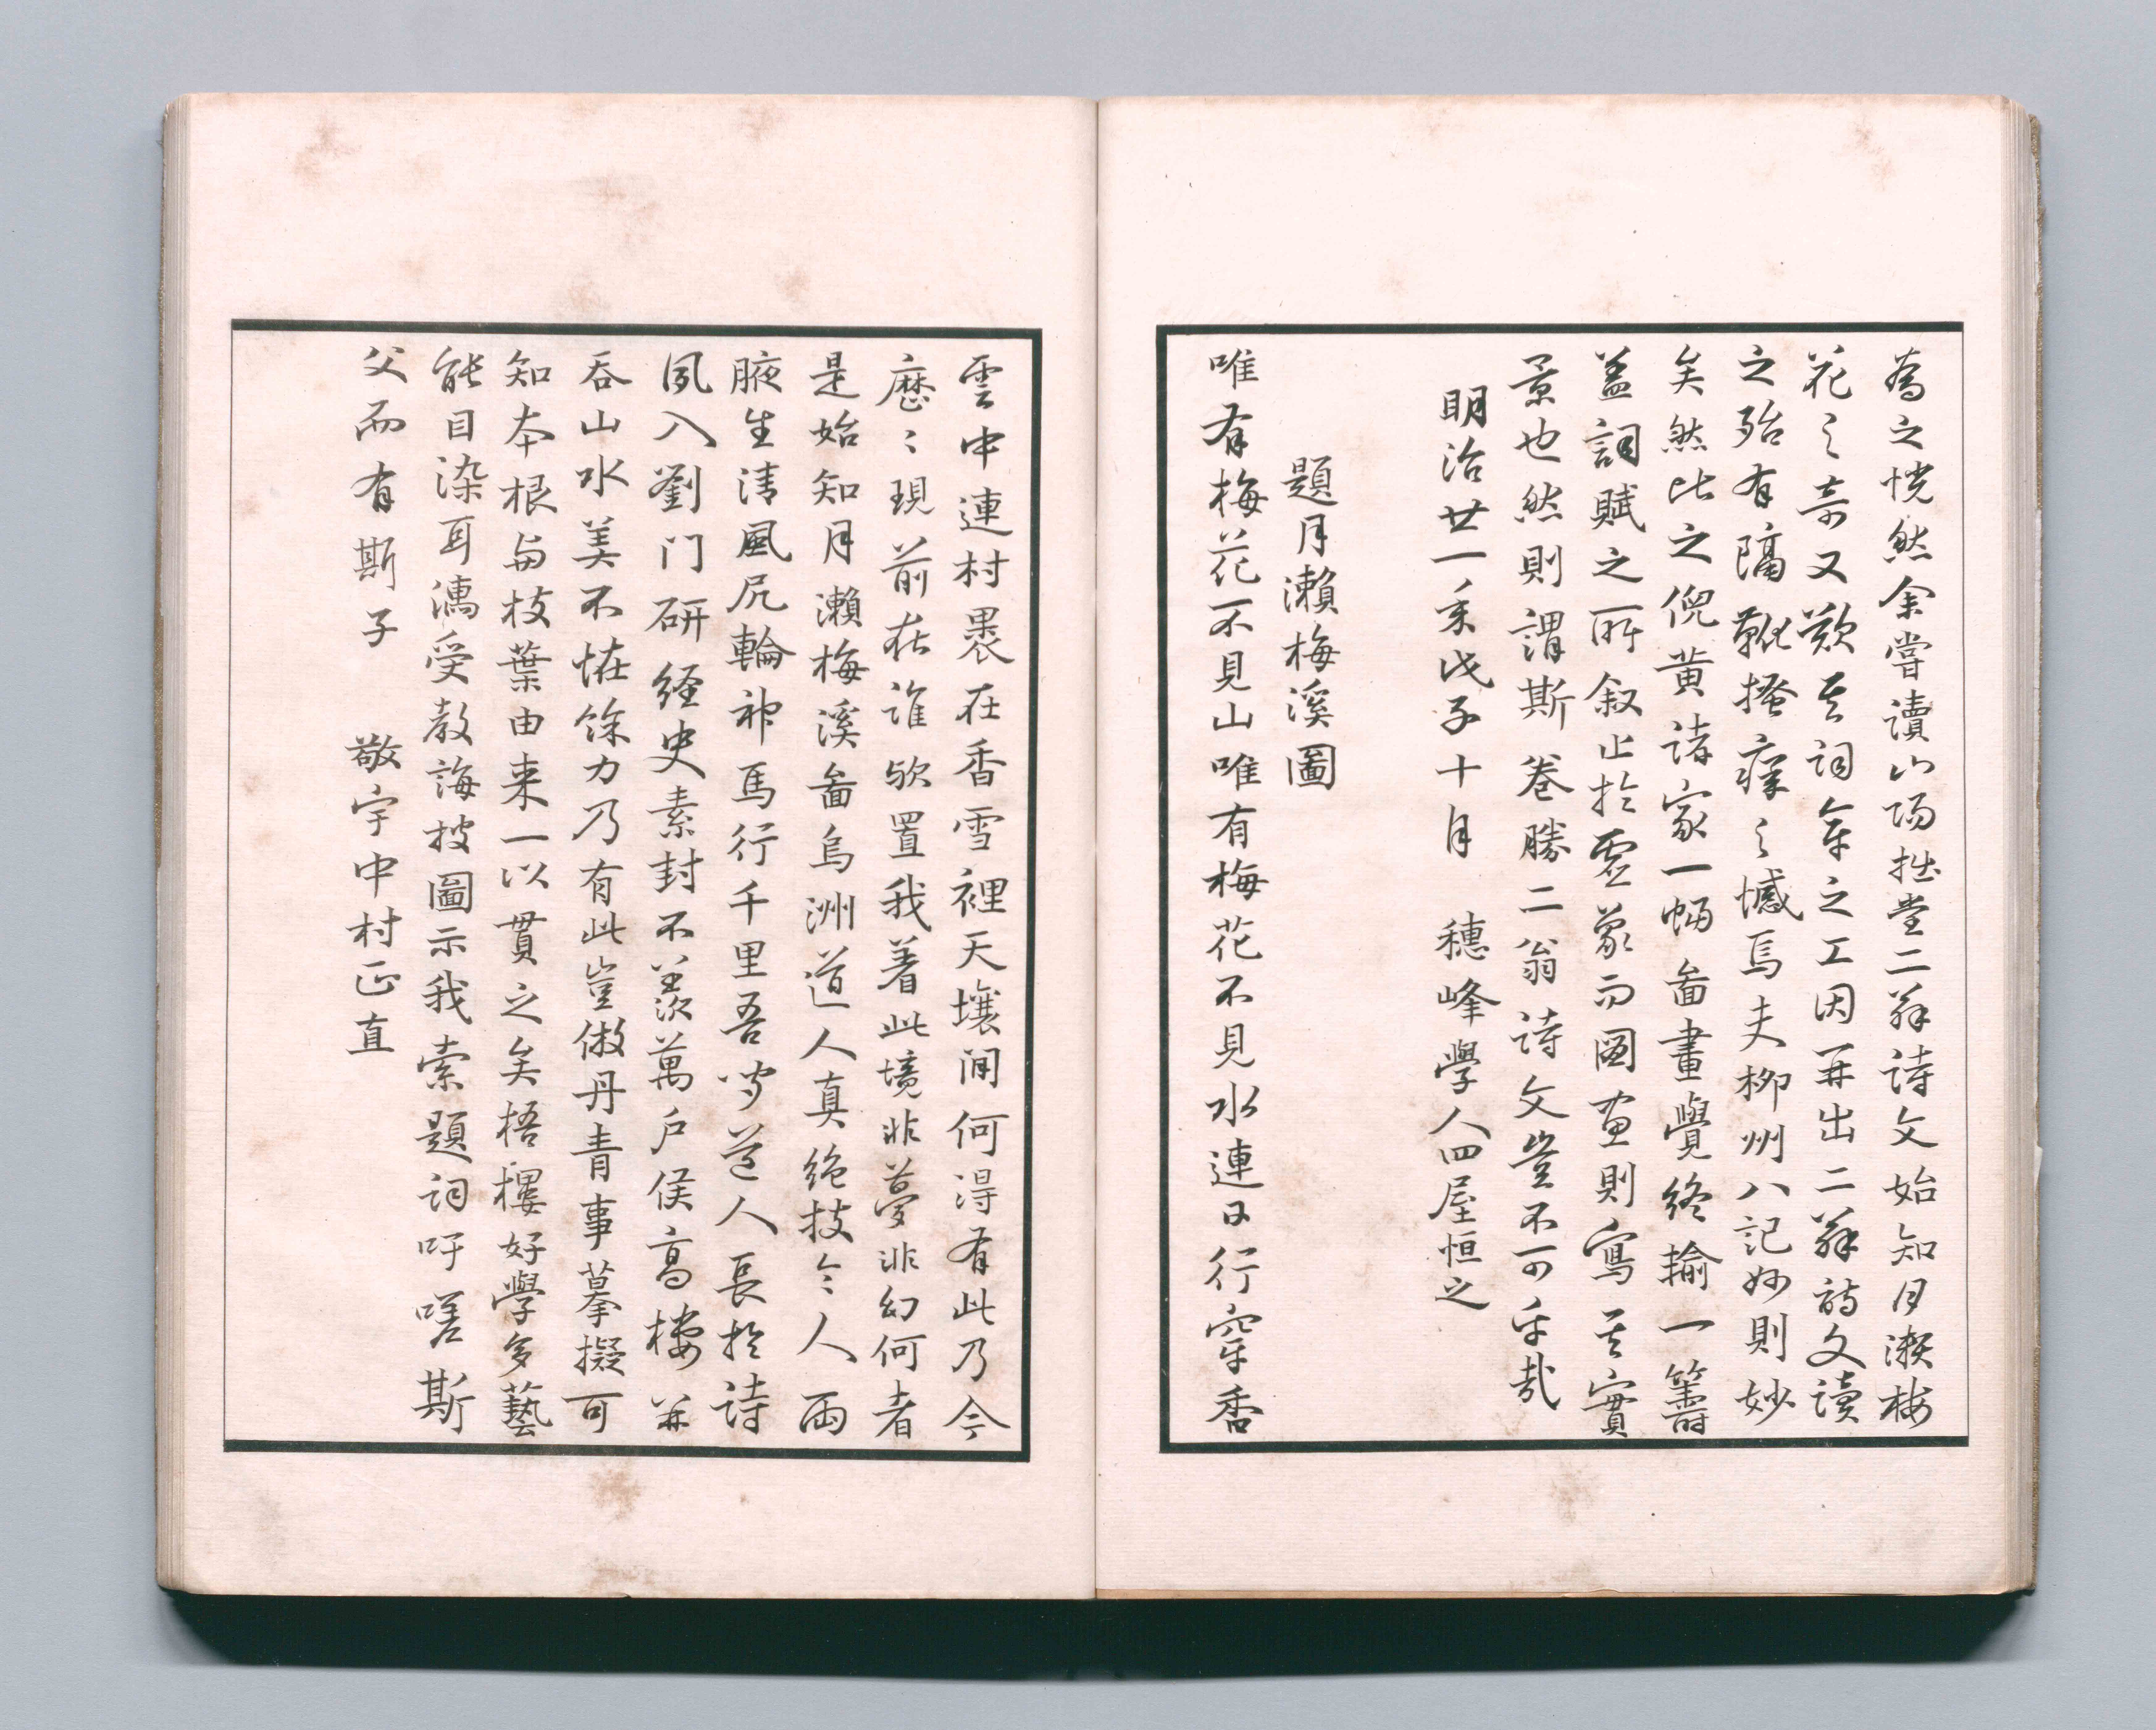 為之恍然余嘗讀山陽拙堂二翁詩文始知月瀨梅
花之奇又歎其詞筆之工因再出二翁詩文讀
之殆有隔靴搔痒之憾焉夫柳州八記妙則妙
矣然比之倪黃諸家一幅畫畫覺終輸一籌
蓋詞賦之所叙止於虛象而圖画則寫其實
景也然則謂斯卷勝二翁詩文豈不可乎哉
明治廿一年戊子十月 穗峰學人四屋恒之
題月瀨梅溪圖
唯有梅花不見山唯有梅花不見水連日行穿香
雲中連村裹在香雪裡天壤間何得有此乃今
歷〻現前在誰歟置我着此境非夢非幻何者
是始知月瀨梅溪畣烏洲道人真絶技令人両
腋生清風尻輪神馬行千里吾聞道人長於詩
夙入劉门研経史素封不羨萬戶侯高樓并
吞山水美不怪餘力乃有此豈倣丹青事摹擬可
知本根與枝葉由来一以貫之矣梧樓好學多藝
能目染耳濡受教誨披圖示我索題詞吁嗟斯
父而有斯子 敬宇中村正直